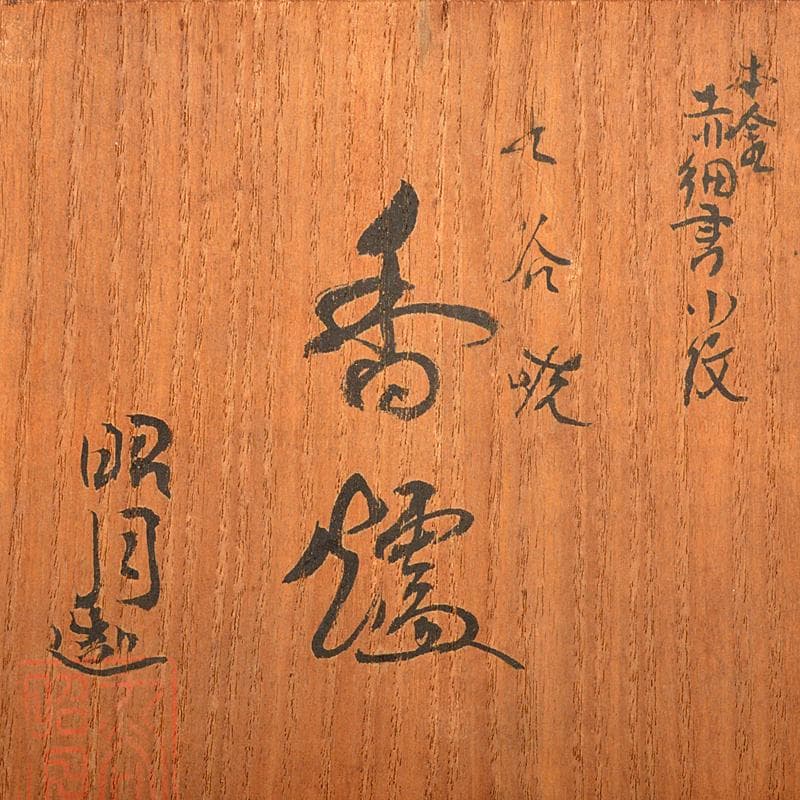 本金
赤細書小紋
九谷焼
香爐
昭月造